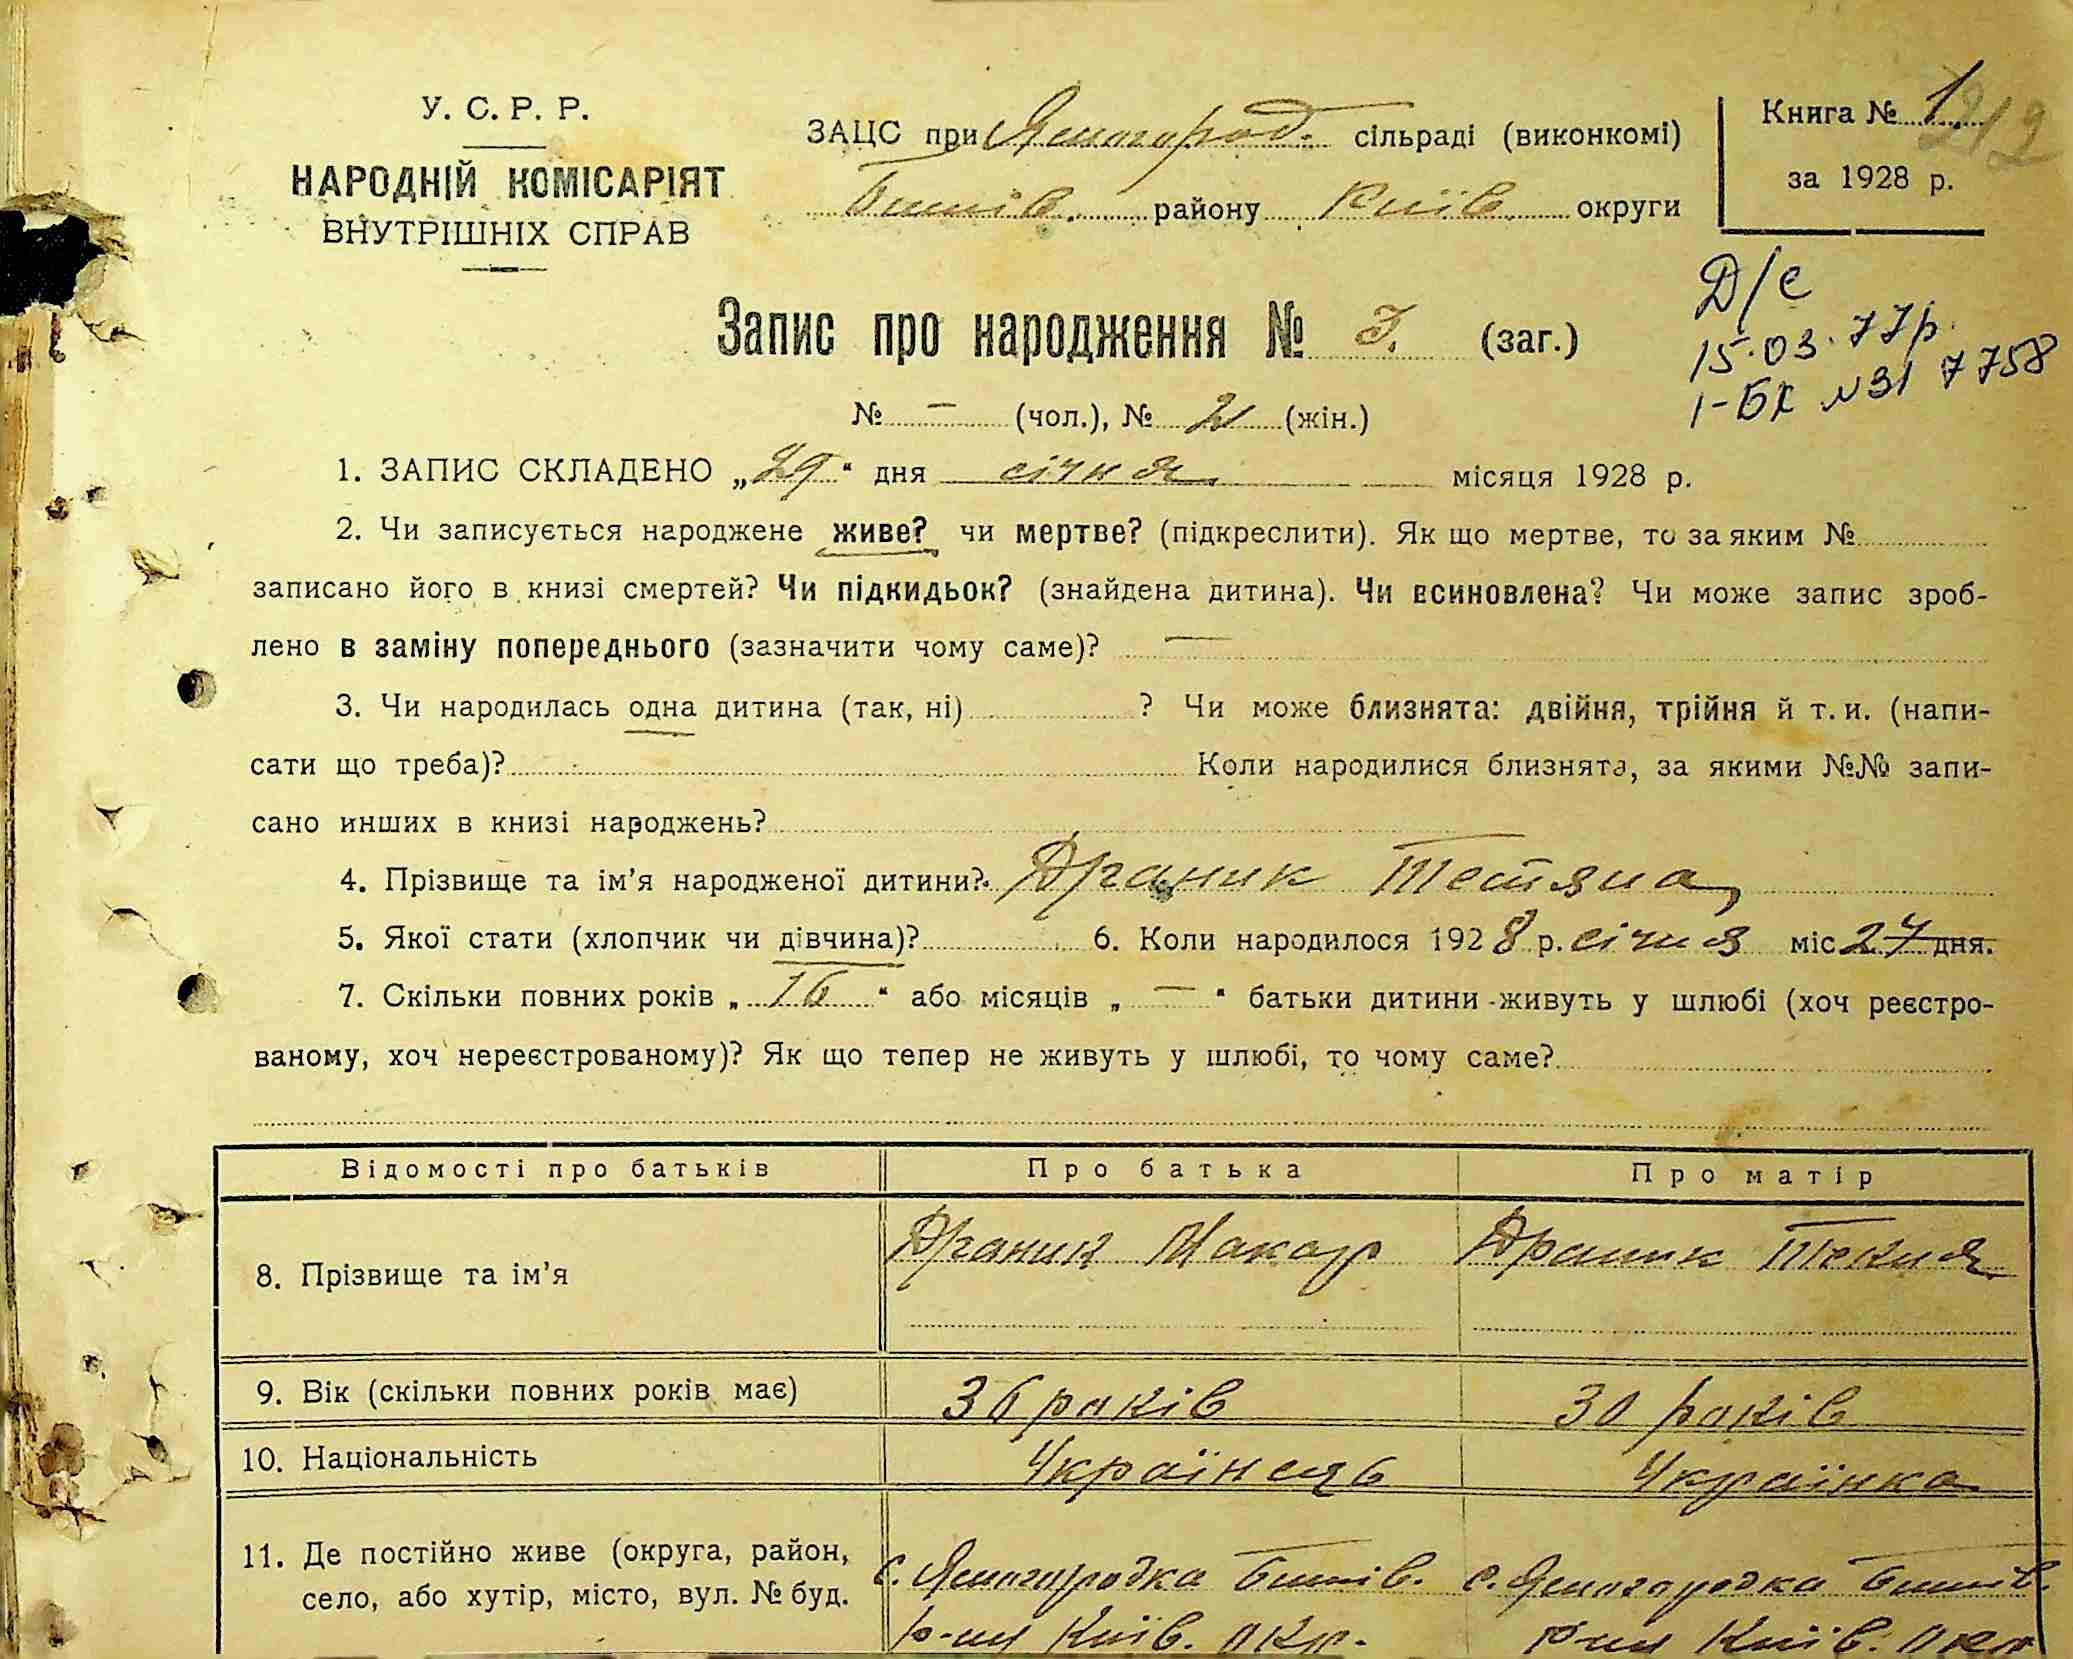 У. С. Р. Р.
НАРОДНІЙ КОМІСАРІЯТ
ВНУТРІШНІХ СПРАВ
ЗАЦС при Ясногород. сільраді (виконкомі)
Бишів. району Київ. округи
Книга № 1
212
за 1928 р.
Д/с
15.03.77р.
І-БК №317758
Запис про народження № 3. (заг.)
№ — (чол.), № 2 (жін.)
1. ЗАПИС СКЛАДЕНО „29“ дня січня місяця 1928 р.
2. Чи записується народжене живе? чи мертве? (підкреслити). Як що мертве, то за яким №
записано його в книзі смертей? Чи підкидьок? (знайдена дитина). Чи всиновлена? Чи може запис зроб-
лено в заміну попереднього (зазначити чому саме)? —
3. Чи народилась одна дитина (так, ні) ? Чи може близнята: двійня, трійня й т. и. (напи-
сати що треба)? Коли народилися близнята, за якими №№ запи-
сано инших в книзі народжень?
4. Прізвище та ім’я народженої дитини? Драник Тетяна
5. Якої стати (хлопчик чи дівчина)? 6. Коли народилося 1928 р. січня міс 27 дня.
7. Скільки повних років „16“ або місяців „—“ батьки дитини живуть у шлюбі (хоч реєстро-
ваному, хоч нереєстрованому)? Як що тепер не живуть у шлюбі, то чому саме?
Відомості про батьків Про батька Про матір
8. Прізвище та ім’я Драник Макар Драник Текля
9. Вік (скільки повних років має) 36 років 30 років
10. Національність Українець Українка
11. Де постійно живе (округа, район, с. Ясногородка Бишів. с. Ясногородка Бишів.
село, або хутір, місто, вул. № буд. р-ну Київ. окр. р-ну Київ. окр